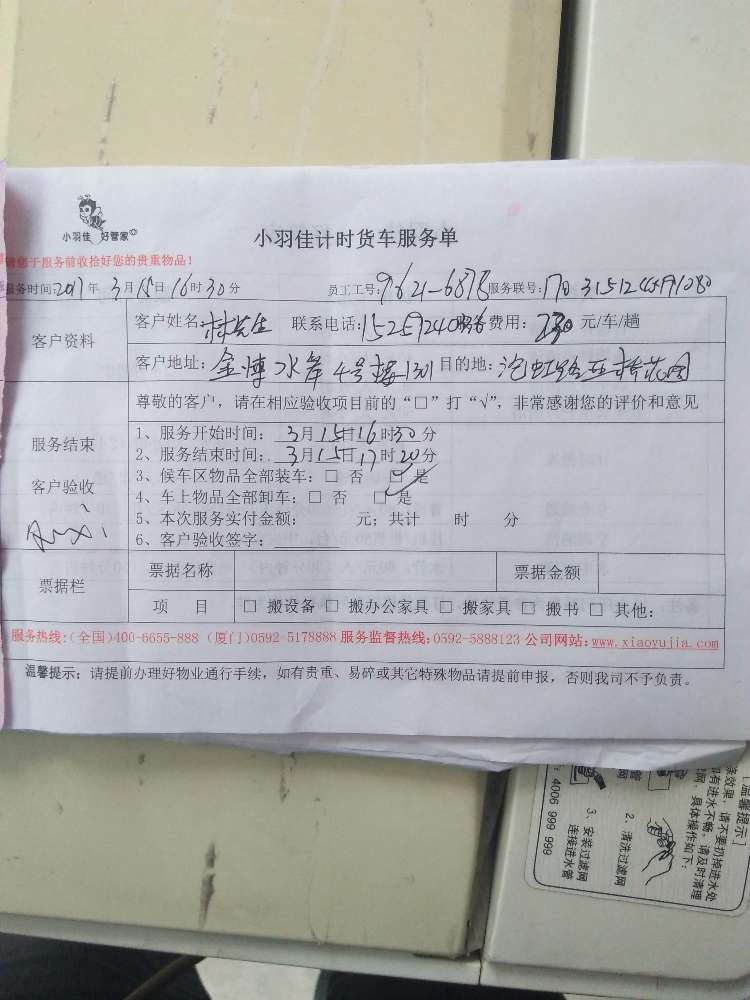 小羽佳 好管家
小羽佳计时货车服务单
请您于服务前收拾好您的贵重物品！
服务时间:2017年3月15日16时30分 员工工号:9621-6878 服务联号:
客户资料
客户姓名:林先生 联系电话: 服务费用:230元/车/趟
客户地址:金博水岸4号楼 目的地:
尊敬的客户，请在相应验收项目前的“□”打“√”，非常感谢您的评价和意见
服务结束
客户验收
1、服务开始时间：3月15日16时30分
2、服务结束时间：3月15日17时20分
3、候车区物品全部装车：□ 否 □ 是
4、车上物品全部卸车：□ 否 □ 是
5、本次服务实付金额： 元；共计 时 分
6、客户验收签字：
票据栏
票据名称 票据金额
项 目 □ 搬设备 □ 搬办公家具 □ 搬家具 □ 搬书 □ 其他：
服务热线:(全国)400-6655-888 (厦门)0592-5178888 服务监督热线:0592-5888123 公司网站:www.xiaoyujia.com
温馨提示：请提前办理好物业通行手续，如有贵重、易碎或其它特殊物品请提前申报，否则我司不予负责。
[温馨提示]
效果，请不要扔掉进水处
有进水不畅，请及时清理
网，具体操作如下：
2、清洗过滤网
3、安装过滤网
连接进水管
4006 999 999